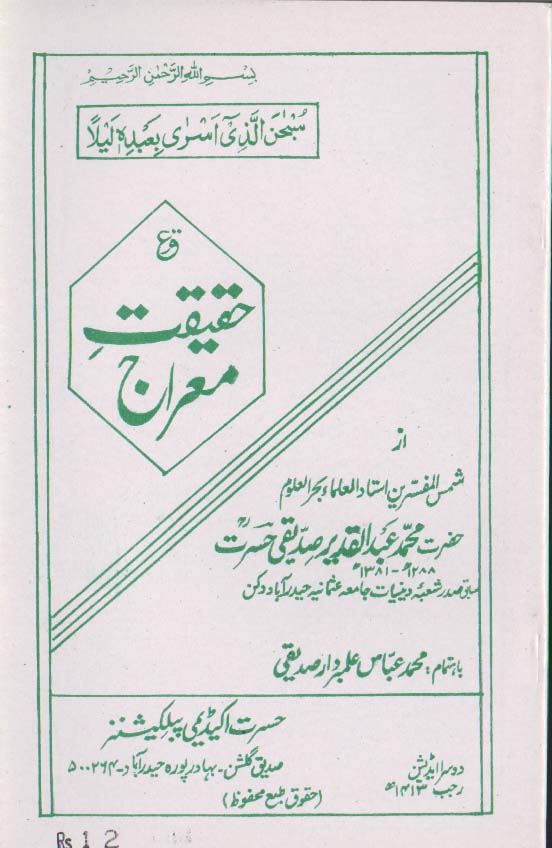 بسم اللہ الرحمٰن الرحیم
سُبْحٰنَ الَّذِیْۤ اَسْرٰی بِعَبْدِہٖ لَیْلًا
حقیقتِ
معراج
از
شمس المفسرین استاذ العلماء بحر العلوم
حضرت محمد عبد القدیر صدیقی حسرتؒ
۱۲۸۸ھ - ۱۳۸۱ھ
سابق صدر شعبۂ دینیات جامعہ عثمانیہ حیدرآباد دکن
باہتمام: محمد عباس علمبردار صدیقی
حسرت اکیڈیمی پبلیکیشنز
صدیق گلشن - بہادر پورہ حیدرآباد - ۵۰۰۲۶۴
(حقوق طبع محفوظ)
دوسرا ایڈیشن
رجب ۱۴۱۳ھ
Rs 12